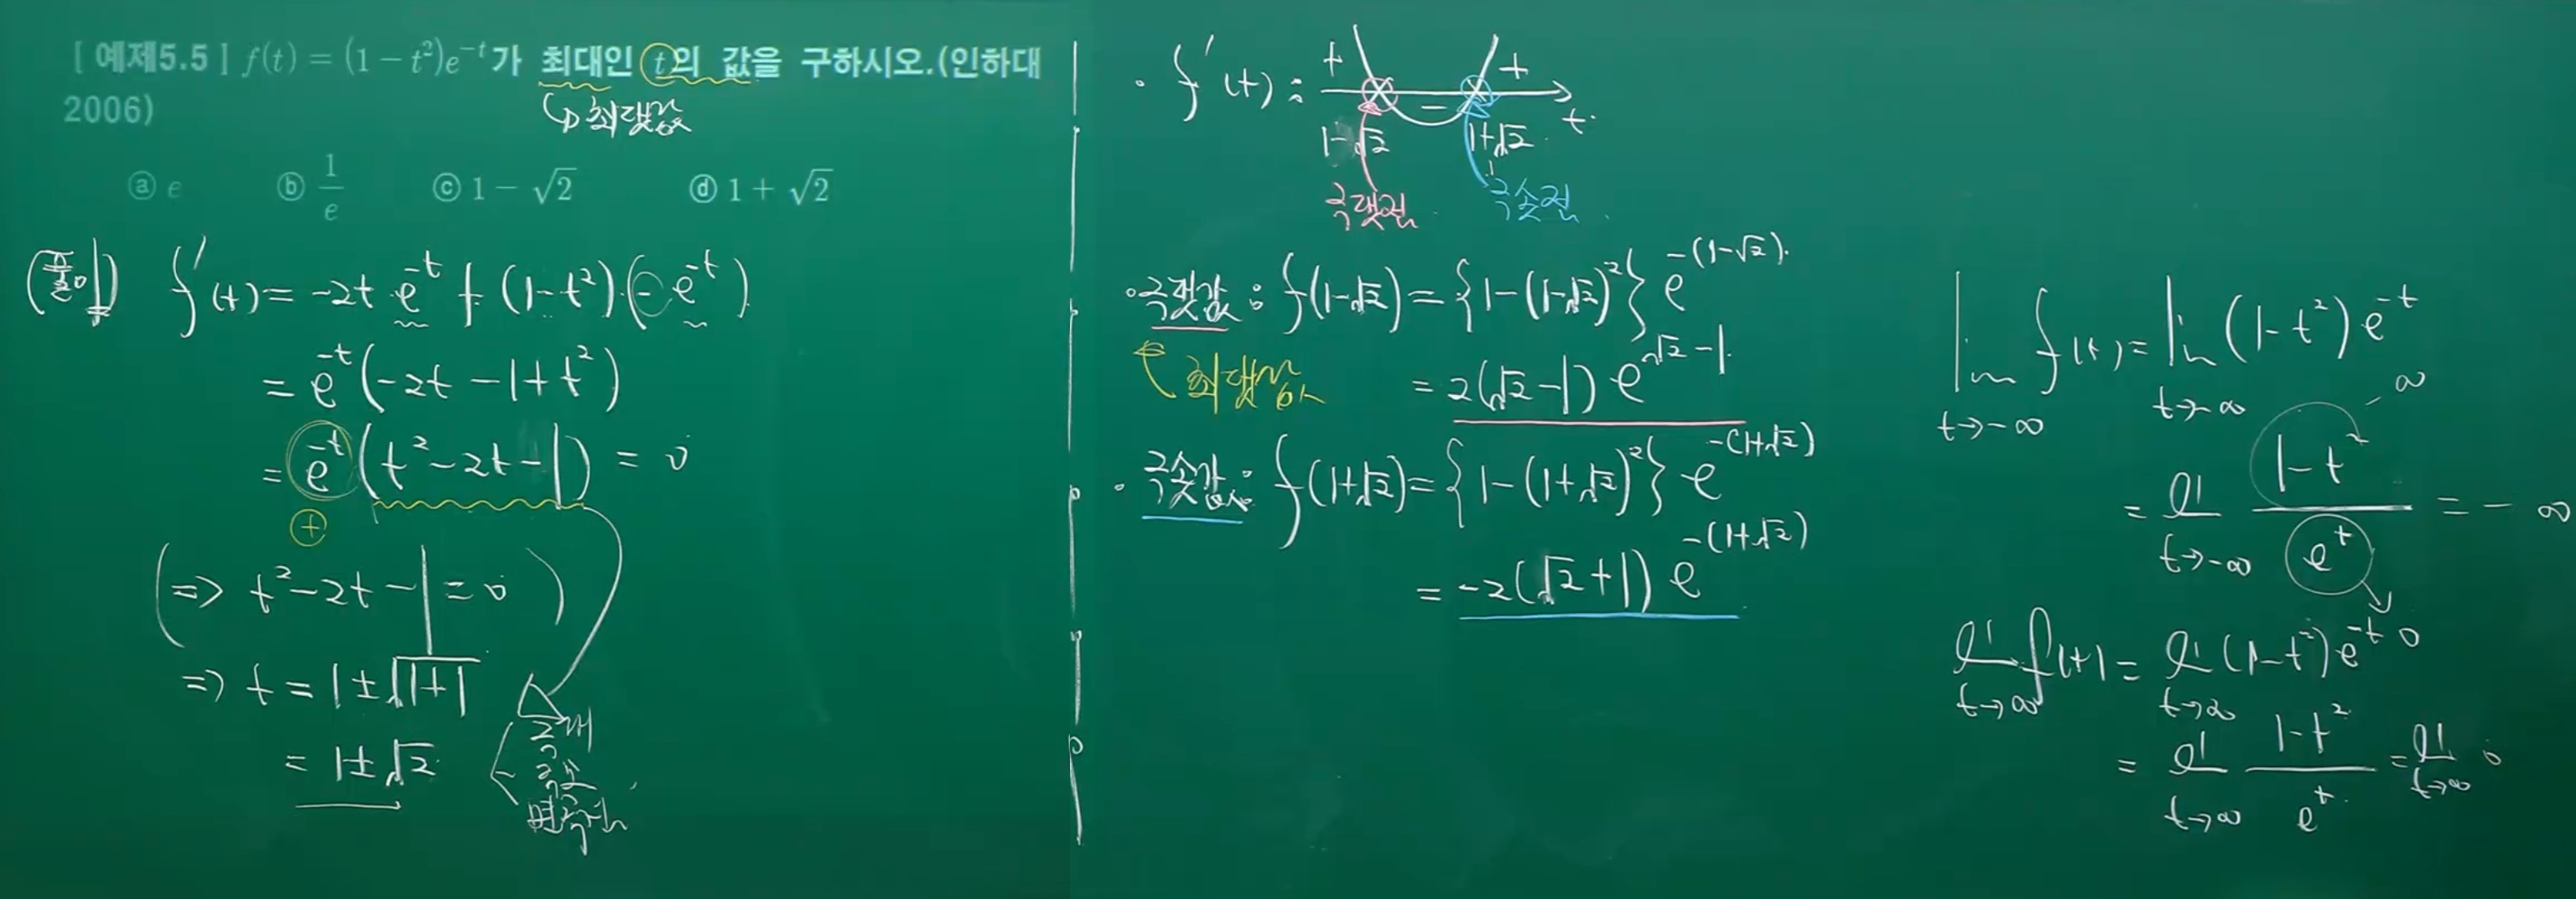 [ 예제5.5 ] f(t) = (1 − t²)e^{−t}가 최대인 t의 값을 구하시오.(인하대
2006)
↳ 최댓값
ⓐ e ⓑ 1/e ⓒ 1 − √2 ⓓ 1 + √2
(풀이) f'(t) = -2t·e^{-t} + (1-t²)·(-e^{-t})
= e^{-t}(-2t-1+t²)
= e^{-t}(t²-2t-1) = 0
⊕
(⇒ t²-2t-1 = 0)
⇒ t = 1±√(1+1)
= 1±√2
2개
변곡점
· f'(t) : + − + t
1-√2 1+√2
극댓점 극솟점
· 극댓값 : f(1-√2) = {1-(1-√2)²} e^{-(1-√2)}
최댓값 = 2(√2-1) e^{√2-1}
· 극솟값 : f(1+√2) = {1-(1+√2)²} e^{-(1+√2)}
= -2(√2+1) e^{-(1+√2)}
lim_{t→-∞} f(t) = lim_{t→-∞} (1-t²)e^{-t}
-∞
= lim_{t→-∞} (1-t²)/e^t = -∞
0
lim_{t→∞} f(t) = lim_{t→∞} (1-t²)e^{-t}
= lim_{t→∞} (1-t²)/e^t = lim_{t→∞} 0